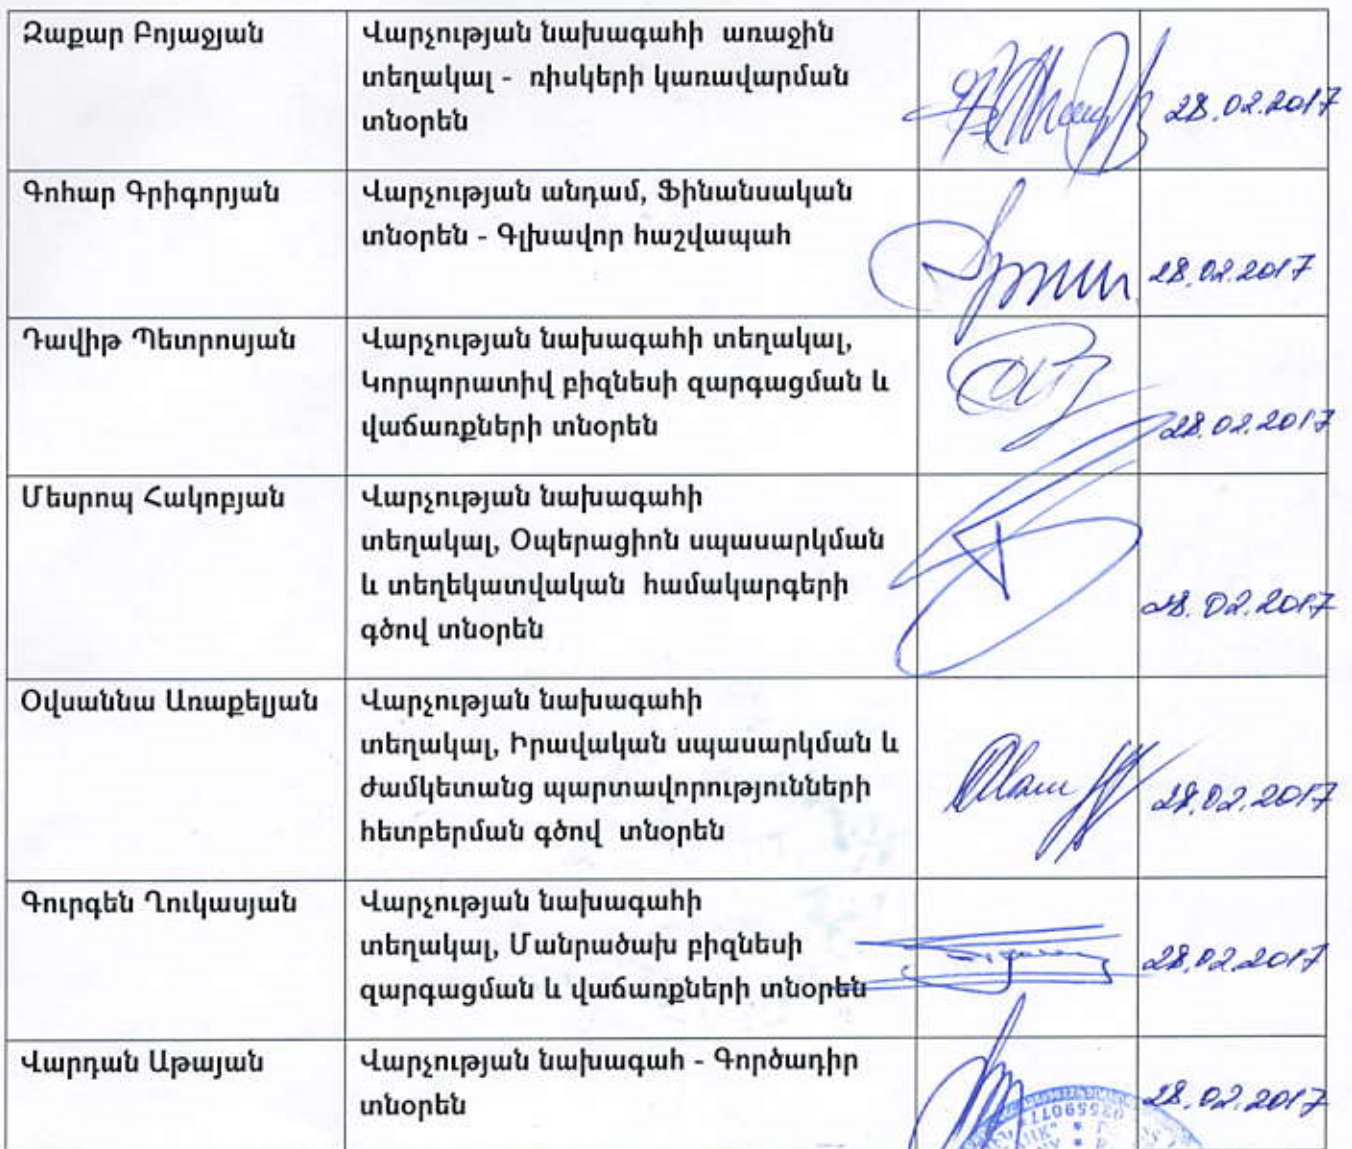 Զաքար Բոյաջյան
Վարչության նախագահի առաջին
տեղակալ - ռիսկերի կառավարման
տնօրեն
28.02.2017
Գոհար Գրիգորյան
Վարչության անդամ, Ֆինանսական
տնօրեն - Գլխավոր հաշվապահ
28.02.2017
Դավիթ Պետրոսյան
Վարչության նախագահի տեղակալ,
Կորպորատիվ բիզնեսի զարգացման և
վաճառքների տնօրեն
28.02.2017
Մեսրոպ Հակոբյան
Վարչության նախագահի
տեղակալ, Օպերացիոն սպասարկման
և տեղեկատվական համակարգերի
գծով տնօրեն
28.02.2017
Օվսաննա Առաքելյան
Վարչության նախագահի
տեղակալ, Իրավական սպասարկման և
ժամկետանց պարտավորությունների
հետբերման գծով տնօրեն
28.02.2017
Գուրգեն Ղուկասյան
Վարչության նախագահի
տեղակալ, Մանրածախ բիզնեսի
զարգացման և վաճառքների տնօրեն
28.02.2017
Վարդան Աթայան
Վարչության նախագահ - Գործադիր
տնօրեն
28.02.2017